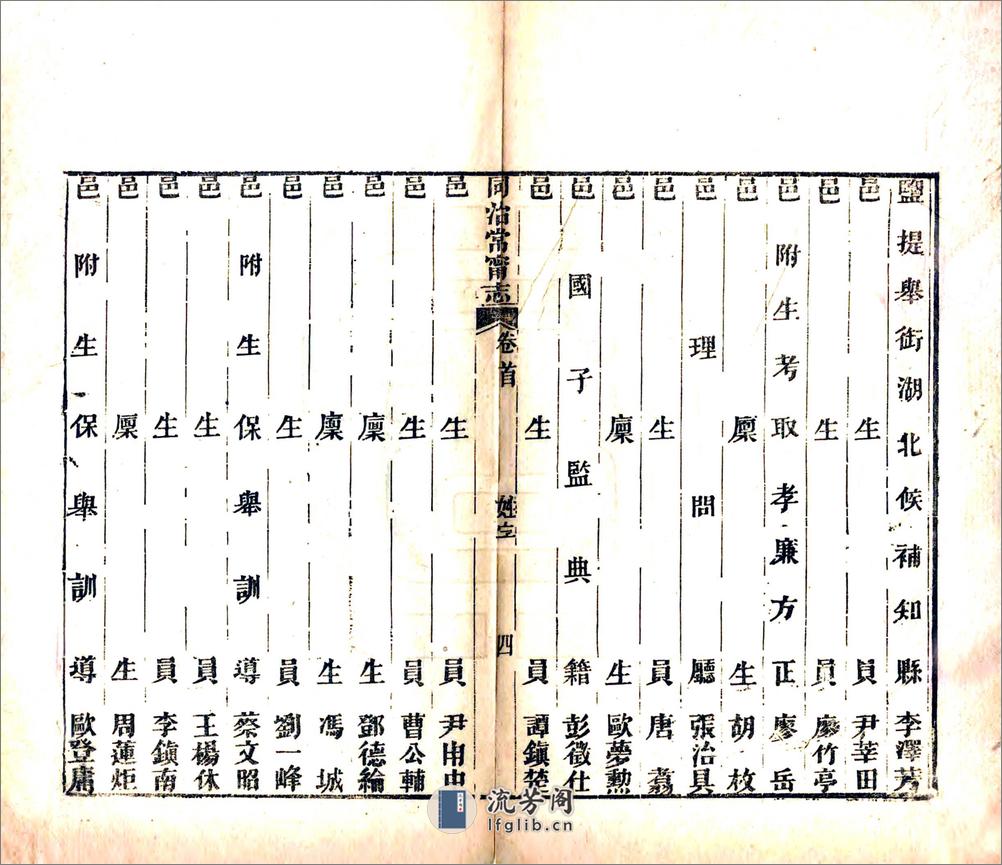 鹽提舉銜湖北候補知縣李澤芳
邑生員尹莘田
邑生員廖竹亭
邑附生考取孝廉方正廖岳
邑廩生胡枚
理問廳張治具
邑生員唐翥
邑廩生歐夢勲
國子監典籍彭徵仕
邑生員譚鎭楚
同治常甯志
卷首
姓字
四
邑生員尹甪中
邑生員曹公輔
邑廩生鄧德綸
邑廩生馮城
邑生員劉一峰
邑附生保舉訓導蔡文昭
邑生員王楊休
邑生員李鎭南
邑廩生周蓮炬
邑附生保舉訓導歐登庸
流芳阁
lfglib.cn